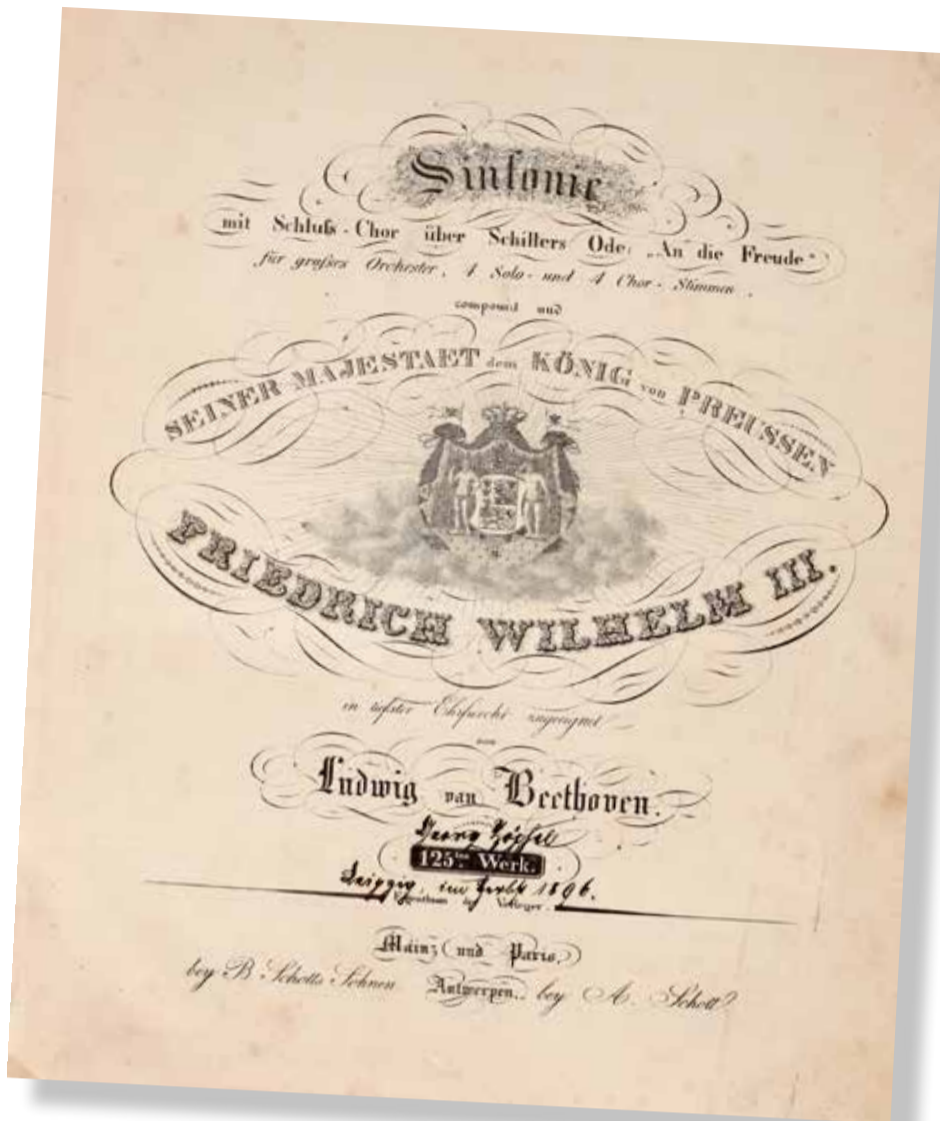 Sinfonie
mit Schluſs-Chor über Schillers Ode: „An die Freude“
für großes Orchester, 4 Solo- und 4 Chor-Stimmen,
componirt und
SEINER MAJESTAET dem KÖNIG von PREUSSEN
FRIEDRICH WILHELM III.
in tiefster Ehrfurcht zugeeignet
von
Ludwig van Beethoven.
Georg
125tes Werk.
Leipzig, im Herbst 1896.
Eigenthum der Verleger.
Mainz und Paris,
bey B. Schotts Söhnen. Antwerpen, bey A. Schott.